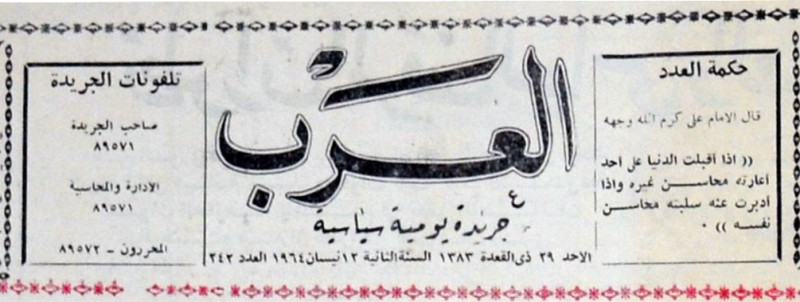 حكمة العدد
قال الامام على كرم الله وجهه
(( اذا اقبلت الدنيا على احد
اعارته محاسن غيره واذا
ادبرت عنه سلبته محاسن
نفسه )) ٠
العرب
جريدة يومية سياسية
الاحد ٢٩ ذى القعدة ١٣٨٣ السنة الثانية ١٢ نيسان ١٩٦٤ العدد ٢٤٢
تلفونات الجريدة
صاحب الجريدة
٨٩٥٧١
الادارة والمحاسبة
٨٩٥٧١
المحررون - ٨٩٥٧٢